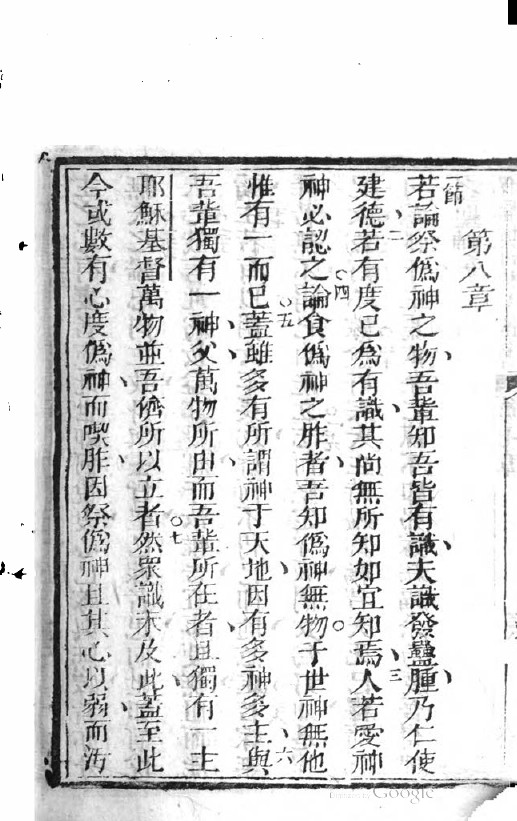 第八章
一節 若論祭僞神之物吾輩知吾皆有識夫識發蠱腫乃仁使
建德二若有度已爲有識其尚無所知如宜知焉三人若愛神
神必認之四論食僞神之胙者吾知僞神無物于世神無他
惟有一而已五蓋雖多有所謂神于天地因有多神多主與六
吾輩獨有一神父萬物所由而吾輩所在者且獨有一主
耶穌基督萬物並吾儕所以立者七然衆識未及此蓋至此
今或數有心度僞神而喫胙因祭僞神且其心以弱而污
Google